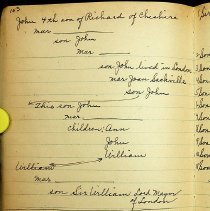 103
John 4th son of Richard of Cheshire
mar
son John
mar
son John lived in London
mar Joan Sackville
son John
This son John
mar
children; Ann
John
William
William
mar
son Sir William Lord Mayor
of London